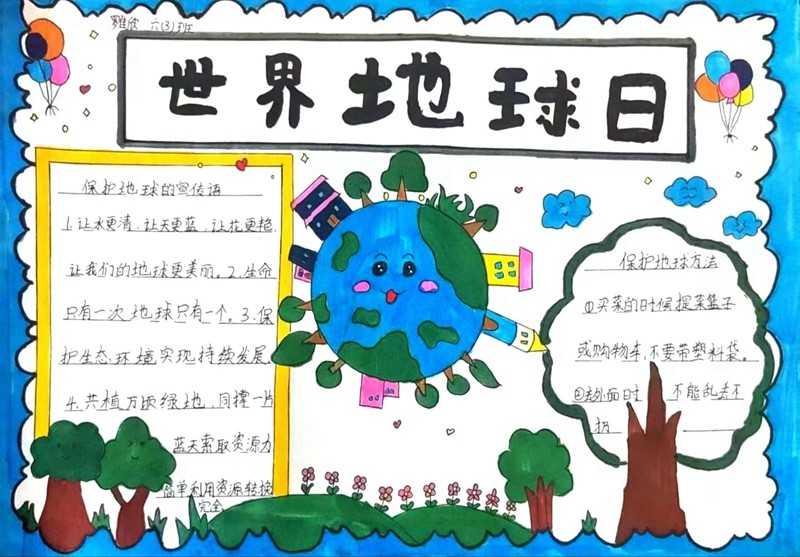 罗雅欣 六(3)班
世界地球日
保护地球的宣传语
1.让水更清,让天更蓝,让花更艳,
让我们的地球更美丽。2.生命
只有一次地球只有一个。3.保
护生态环境实现持续发展。
4.共植万顷绿地,同撑一片
蓝天索取资源力
简单利用资源转换
完全
保护地球方法
①买菜的时候提菜篮子
或购物车,不要带塑料袋。
②去外面时 不能乱丢不
扔